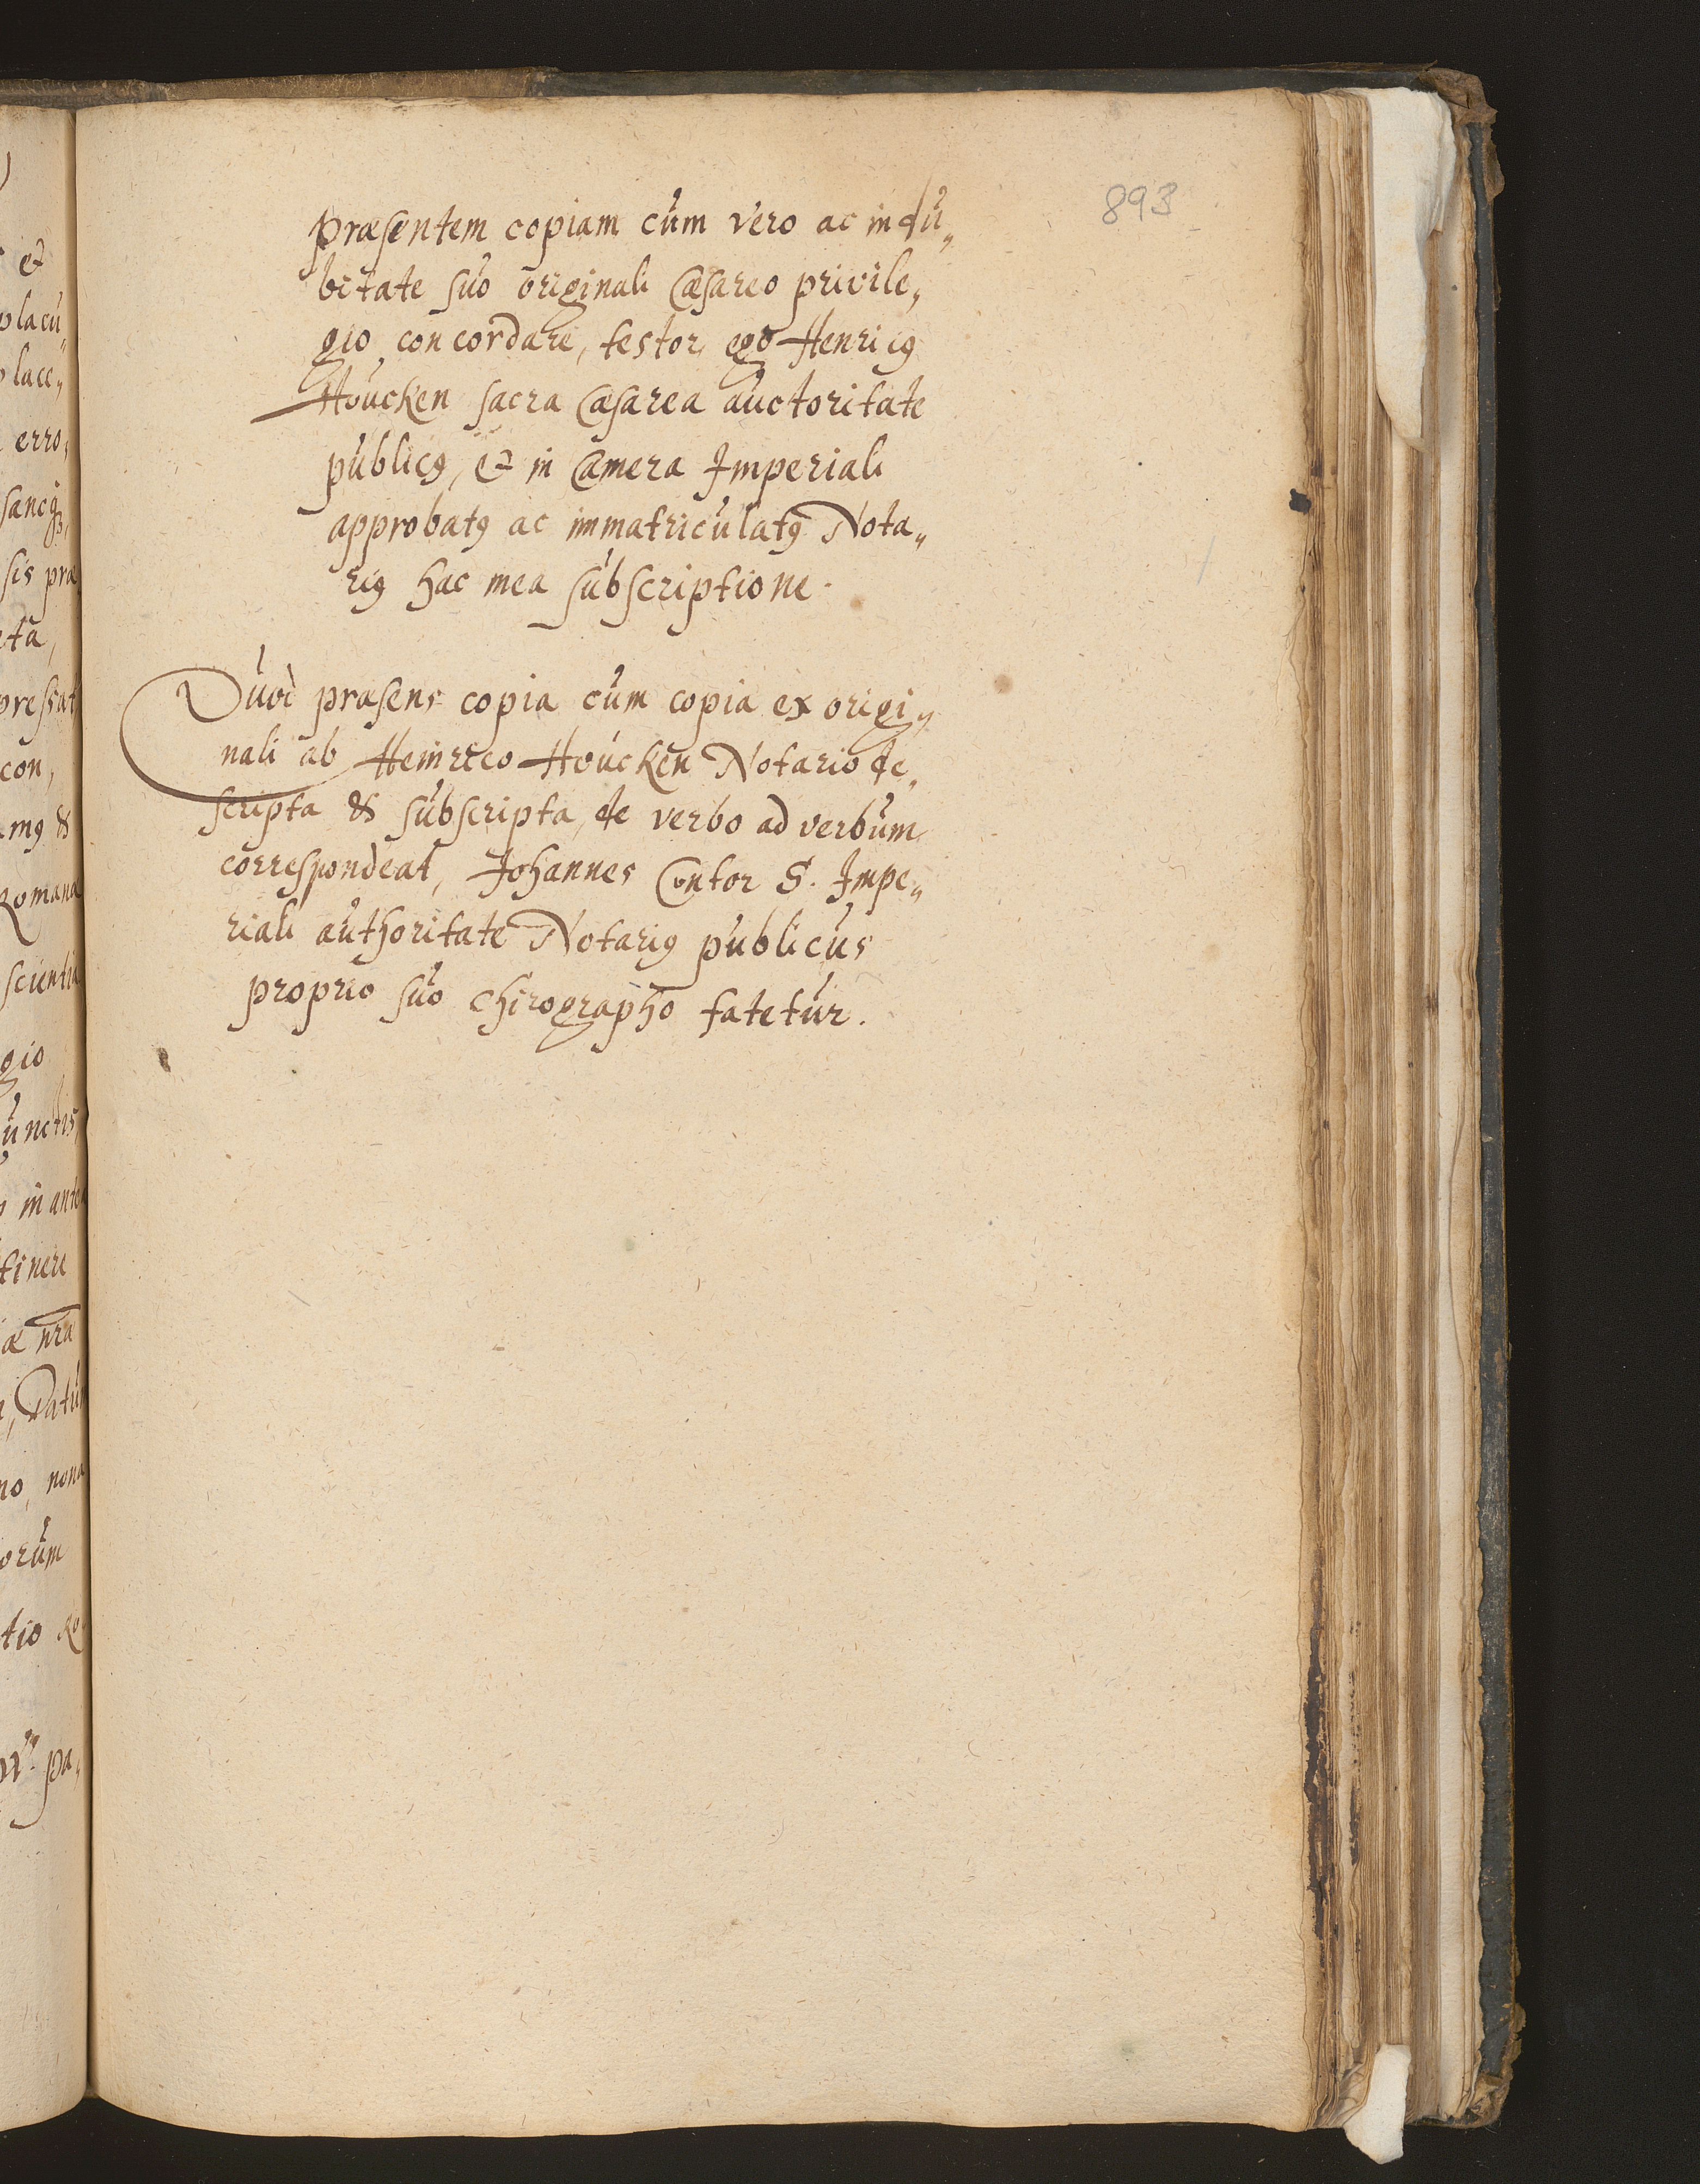 893
præsentem copiam cum vero ac indu„
bitate suo originali Cæsareo privile„
gio concordare, testor ego Henricꝰ
Houcken sacra Cæsarea auctoritate
publicꝰ, et in Camera Imperiali
approbatꝰ ac immatriculatꝰ Nota„
riꝰ hac mea subscriptione.
Quod præsens copia cum copia ex origi„
nali ab Heinrico Houcken Notario de„
scripta & subscripta, de verbo ad verbum
correspondeat, Johannes Contor S. Impe„
riali authoritate Notariꝰ publicus
proprio suo chirographo fatetur.
et
placu„
place„
erro,
sis præ
con,
Romana
scientia
gio
unctis
in ante
tinere
orum
tio
pa„